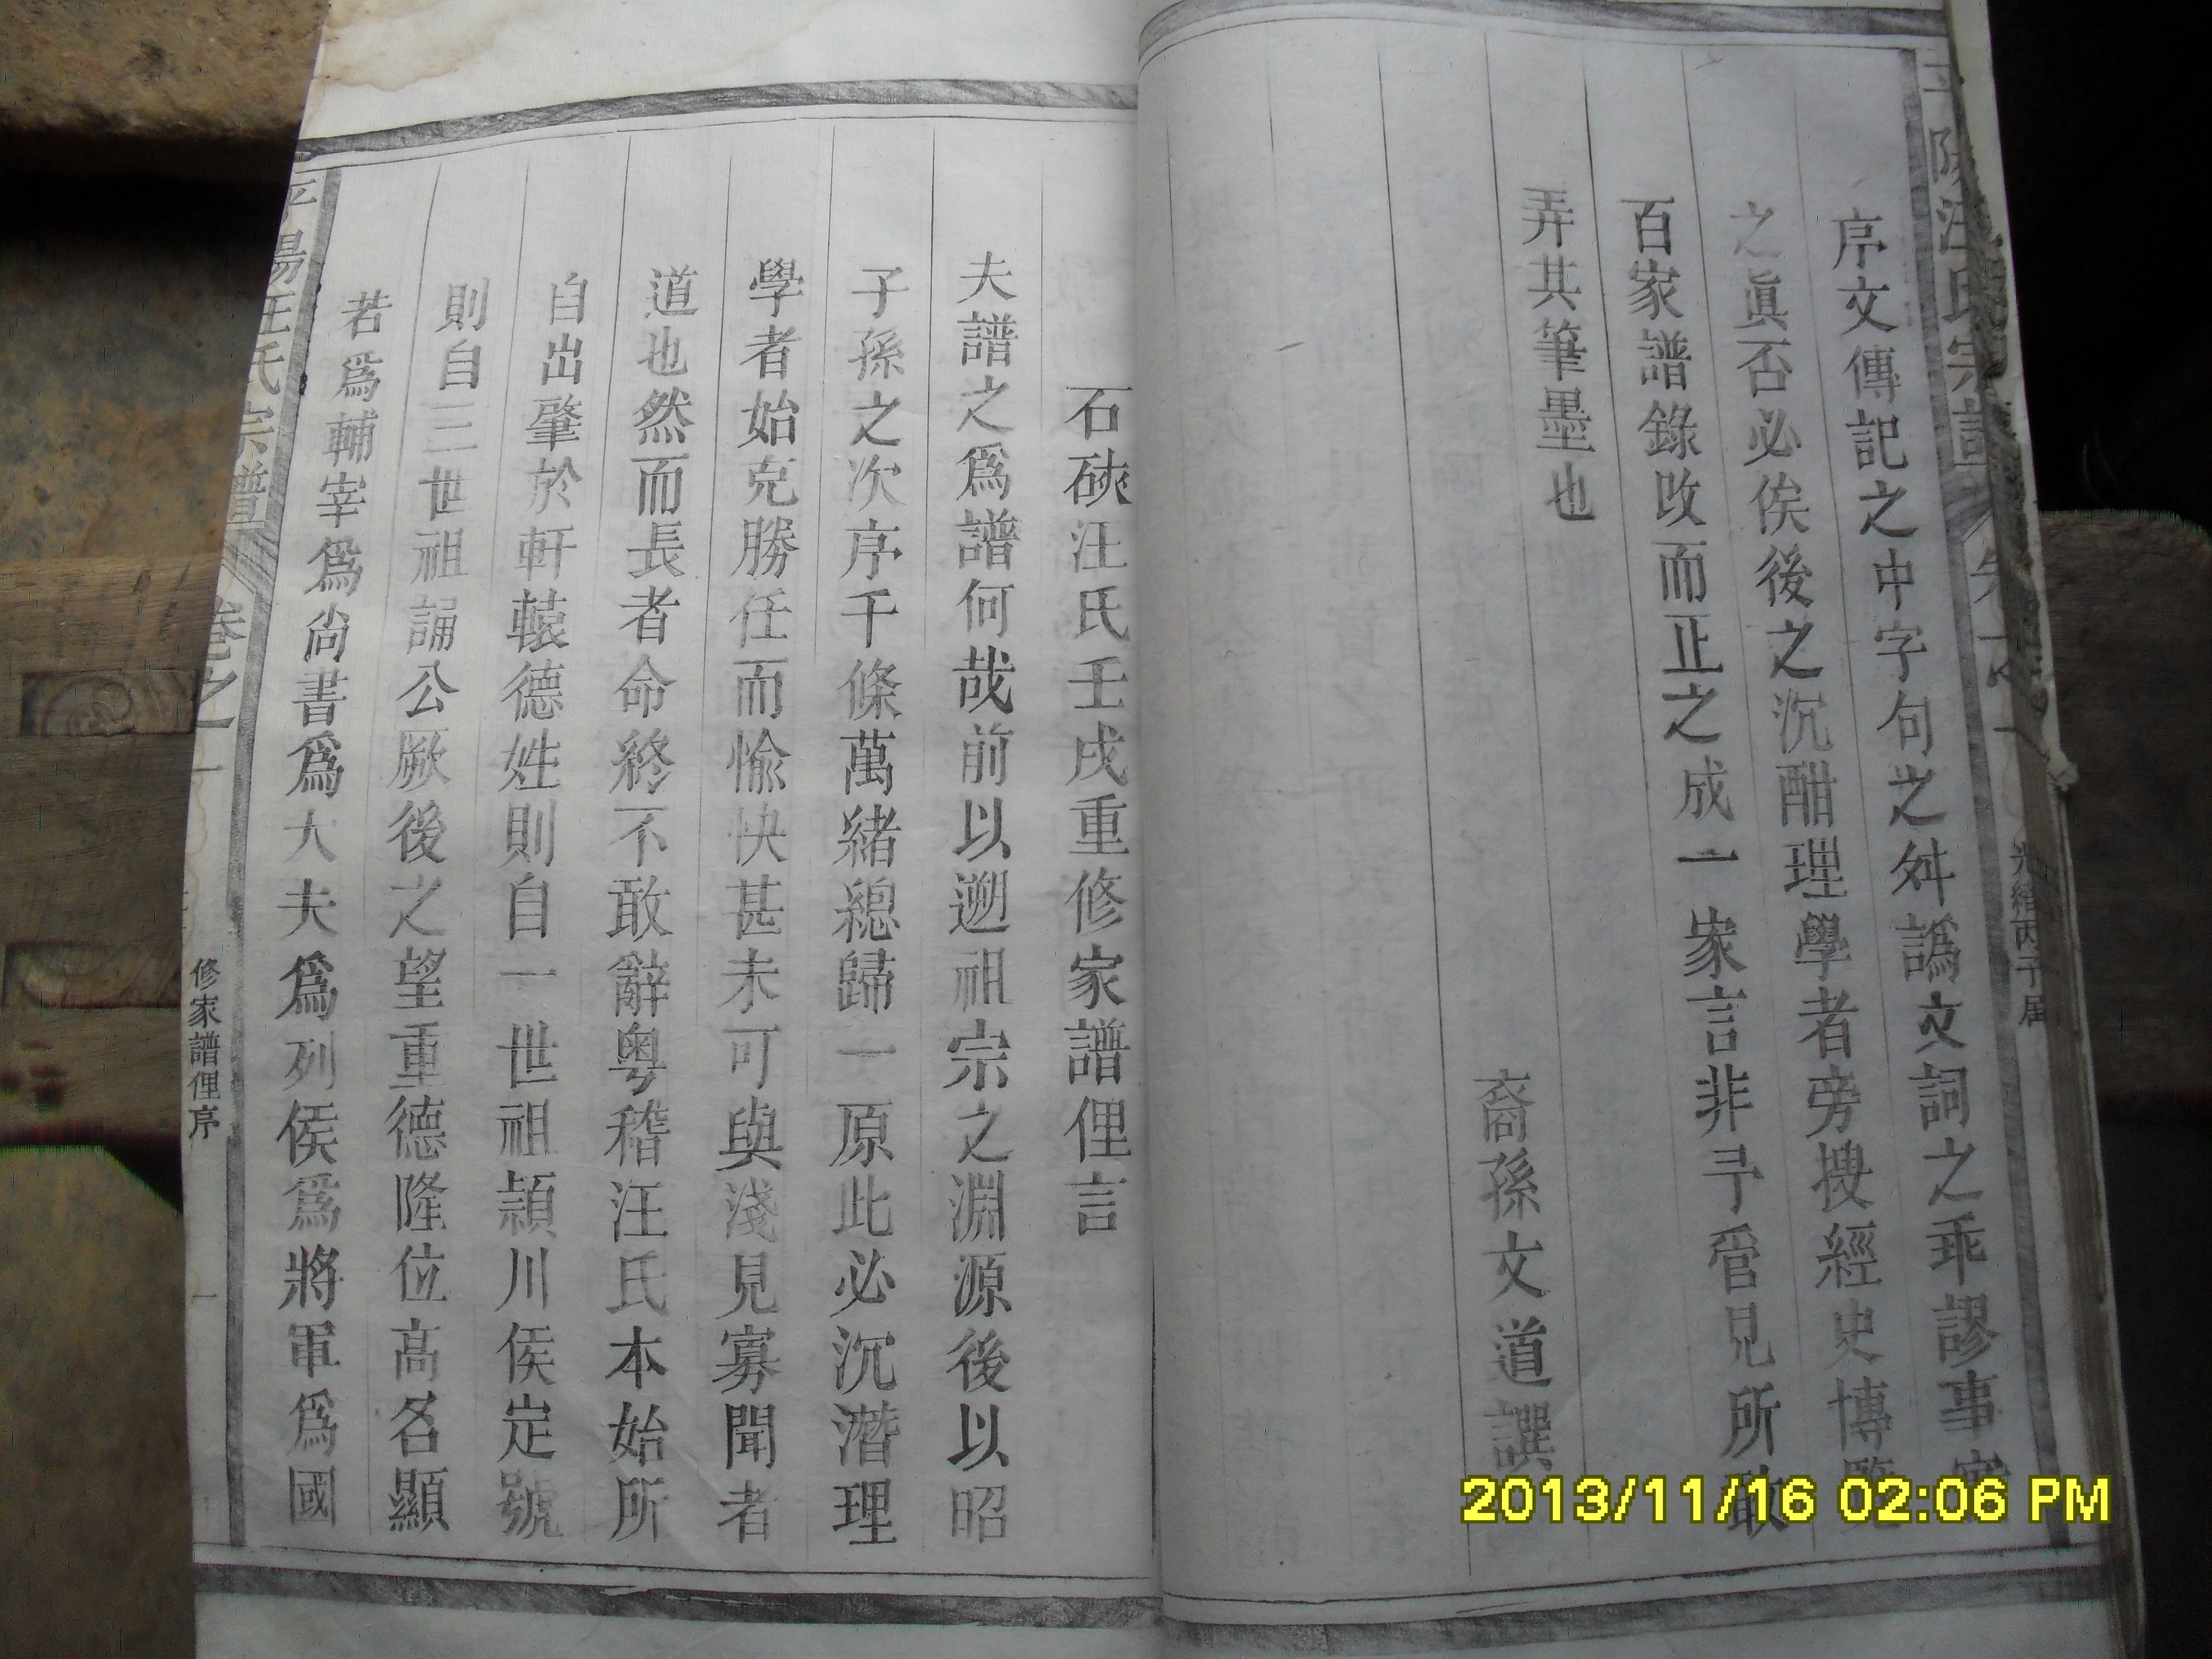 序文傳記之中字句之舛譌文詞之乖謬事
之眞否必俟後之沉酣理學者旁搜經史博覽
百家譜錄改而正之成一家言非予管見所敢
弄其筆墨也
裔孫文道譔
石硤汪氏壬戌重修家譜俚言
夫譜之爲譜何哉前以遡祖宗之淵源後以昭
子孫之次序千條萬緒總歸一原此必沉潛理
學者始克勝任而愉快甚未可與淺見寡聞者
道也然而長者命終不敢辭粤稽汪氏本始所
自出肇於軒轅德姓則自一世祖頴川侯定號
則自三世祖誦公厥後之望重德隆位高名顯
若爲輔宰爲尙書爲大夫爲列侯爲將軍爲國
平陽汪氏宗譜
卷之一
修家譜俚序
一
2013/11/16 02:06 PM